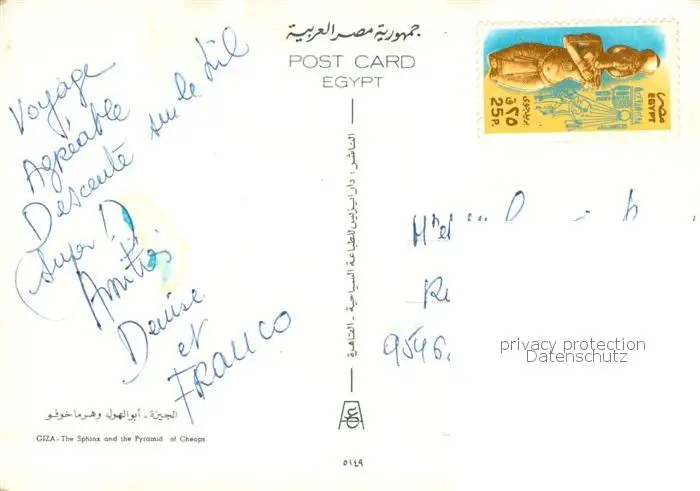 جمهورية مصر العربية
POST CARD
EGYPT
Voyage
Agréable
Descente sur le Nil
Amitiés
Denise
et
FRANCO
الجيزة - أبو الهول وهرم خوفو
GIZA - The Sphinx and the Pyramid of Cheops
الناشر : دار ايزيس للطباعة السياحية - القاهرة
٥١٤٩
بريد جوى
٢٥ ق
25 P.
مصر
EGYPT
9546
privacy protection
Datenschutz